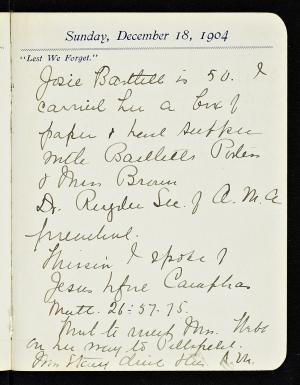 Sunday, December 18, 1904
"Lest We Forget."
Josie Bartlett is 50. I
carried her a box of
paper & have supper
with Bartletts Porters
& Miss Brown
Dr. Ryder Sec. of A. M. A
preached.
I spoke of
Jesus before Caiaphas
Matt. 26:57-75.
to meet Mrs. Webb
on her way to
Mrs. A.M.